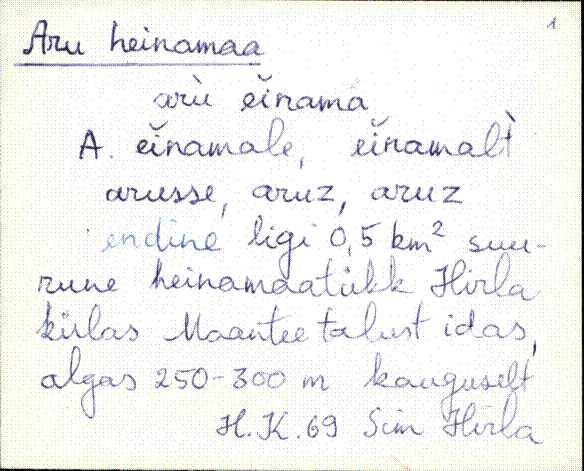 1
Aru heinamaa
arù eĭnama
A. eĭnamale, eĭnamalt̀
arusse, aruz, aruz
endine ligi 0,5 km² suu-
rune heinamaatükk Hirla
külas Maantee talust idas,
algas 250-300 m kauguselt
H.K. 69 Sim Hirla